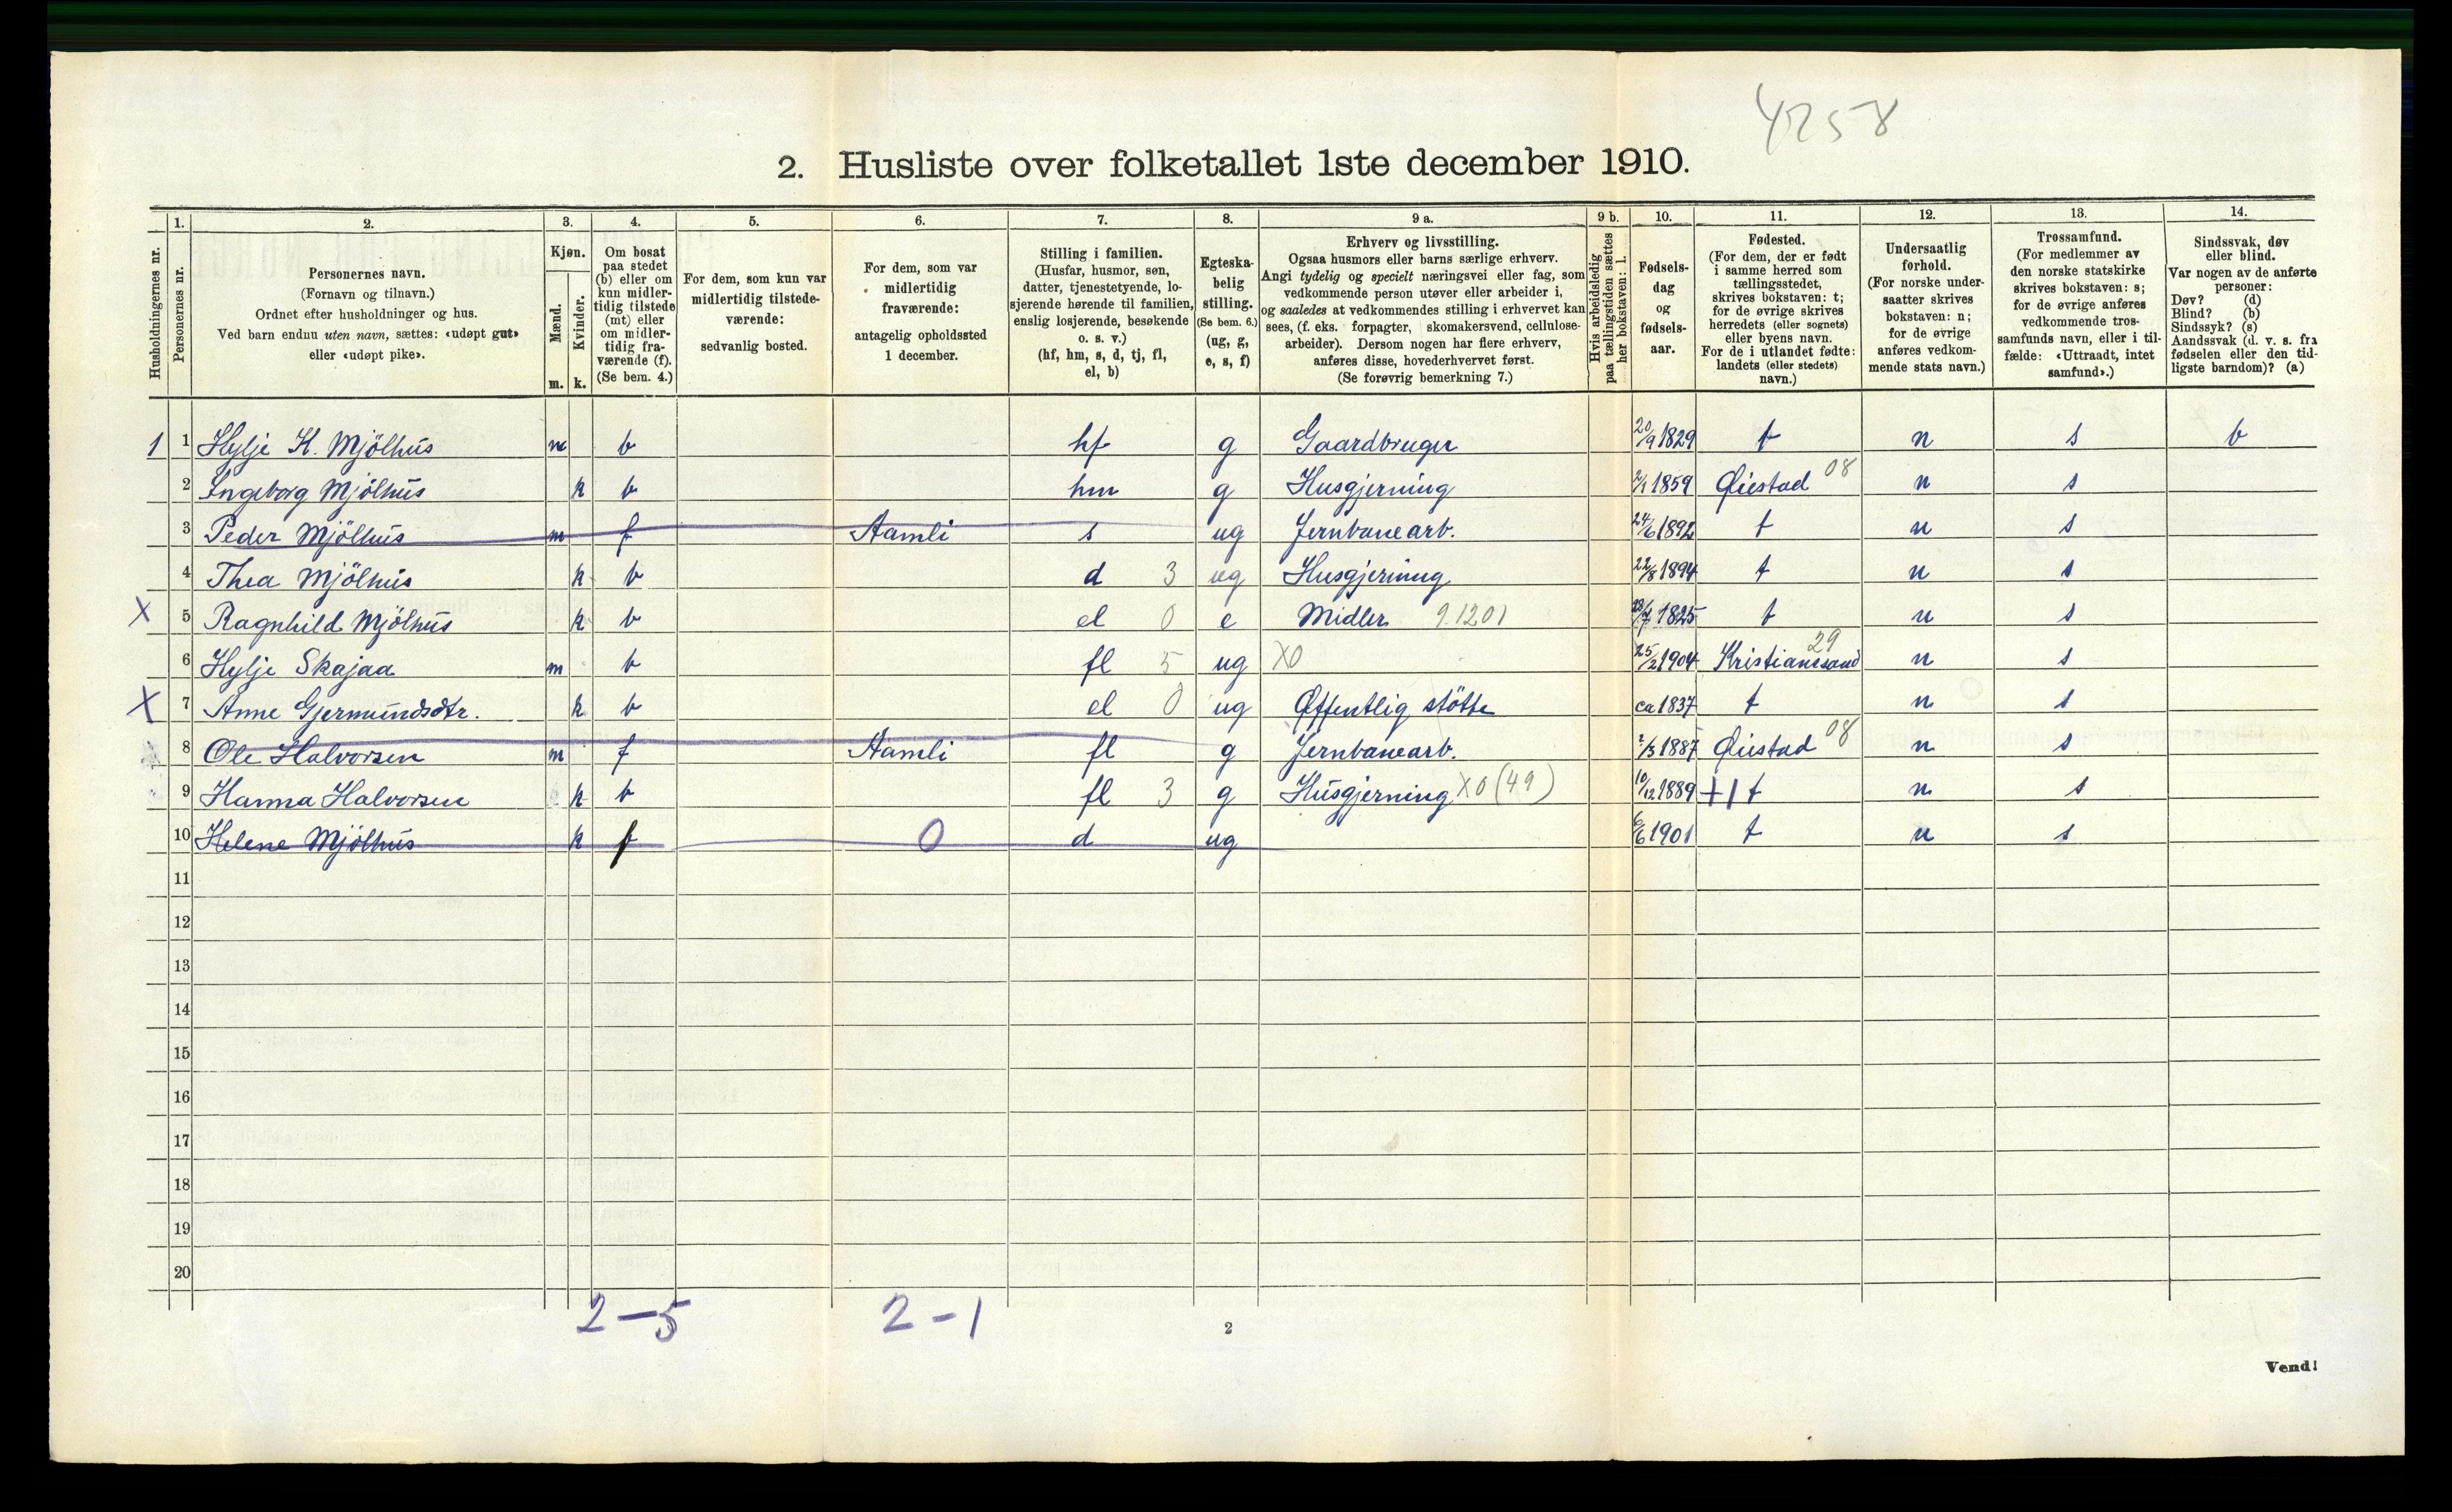 4258
2. Husliste over folketallet 1ste december 1910.
Husholdningernes nr.
1. Personernes nr.
2. Personernes navn. (Fornavn og tilnavn.) Ordnet efter husholdninger og hus. Ved barn endnu uten navn, sættes: «udøpt gut» eller «udøpt pike».
3. Kjøn. Mænd. m. Kvinder. k.
4. Om bosat paa stedet (b) eller om kun midlertidig tilstede (mt) eller om midlertidig fraværende (f). (Se bem. 4.)
5. For dem, som kun var midlertidig tilstedeværende: sedvanlig bosted.
6. For dem, som var midlertidig fraværende: antagelig opholdssted 1 december.
7. Stilling i familien. (Husfar, husmor, søn, datter, tjenestetyende, losjerende hørende til familien, enslig losjerende, besøkende o. s. v.) (hf, hm, s, d, tj, fl, el, b)
8. Egteskabelig stilling. (Se bem. 6.) (ug, g, e, s, f)
9 a. Erhverv og livsstilling. Ogsaa husmors eller barns særlige erhverv. Angi tydelig og specielt næringsvei eller fag, som vedkommende person utøver eller arbeider i, og saaledes at vedkommendes stilling i erhvervet kan sees, (f. eks. forpagter, skomakersvend, cellulosearbeider). Dersom nogen har flere erhverv, anføres disse, hovederhvervet først. (Se forøvrig bemerkning 7.)
9 b. Hvis arbeidsledig paa tællingstiden sættes her bokstaven: l.
10. Fødselsdag og fødselsaar.
11. Fødested. (For dem, der er født i samme herred som tællingsstedet, skrives bokstaven: t; for de øvrige skrives herredets (eller sognets) eller byens navn. For de i utlandet fødte: landets (eller stedets) navn.)
12. Undersaatlig forhold. (For norske undersaatter skrives bokstaven: n; for de øvrige anføres vedkommende stats navn.)
13. Trossamfund. (For medlemmer av den norske statskirke skrives bokstaven: s; for de øvrige anføres vedkommende trossamfunds navn, eller i tilfælde: «Uttraadt, intet samfund».)
14. Sindssvak, døv eller blind. Var nogen av de anførte personer: Døv? (d) Blind? (b) Sindssyk? (s) Aandssvak (d. v. s. fra fødselen eller den tidligste barndom)? (a)
1 1 Hylje K. Mjölhus m b hf g Gaardbruger 20/9 1829 t n s b
2 Ingeborg Mjölhus k b hm g Husgjerning 2/1 1859 Øiestad 08 n s
3 Peder Mjölhus m f Aamli s ug Jernbanearb. 24/6 1892 t n s
4 Thea Mjölhus k b d 3 ug Husgjerning 22/8 1894 t n s
X 5 Ragnhild Mjölhus k b el 0 e Midler 9.1201 1825 t n s
6 Hylje Skajaa m b fl 5 ug X0 25/2 1904 Kristianssand 29 n s
X 7 Anne Gjermundsdtr. k b el 0 ug Offentlig stötte ca 1837 t n s
8 Ole Halvorsen m f Aamli fl g Jernbanearb. 1887 Øiestad 08 n s
9 Hanna Halvorsen k b fl 3 g Husgjerning X0 (49) 10/12 1889 +1 t n s
10 Helene Mjölhus k f 0 d ug 6/6 1901 t n s
11
12
13
14
15
16
17
18
19
20
2-5 2-1
2
Vend!